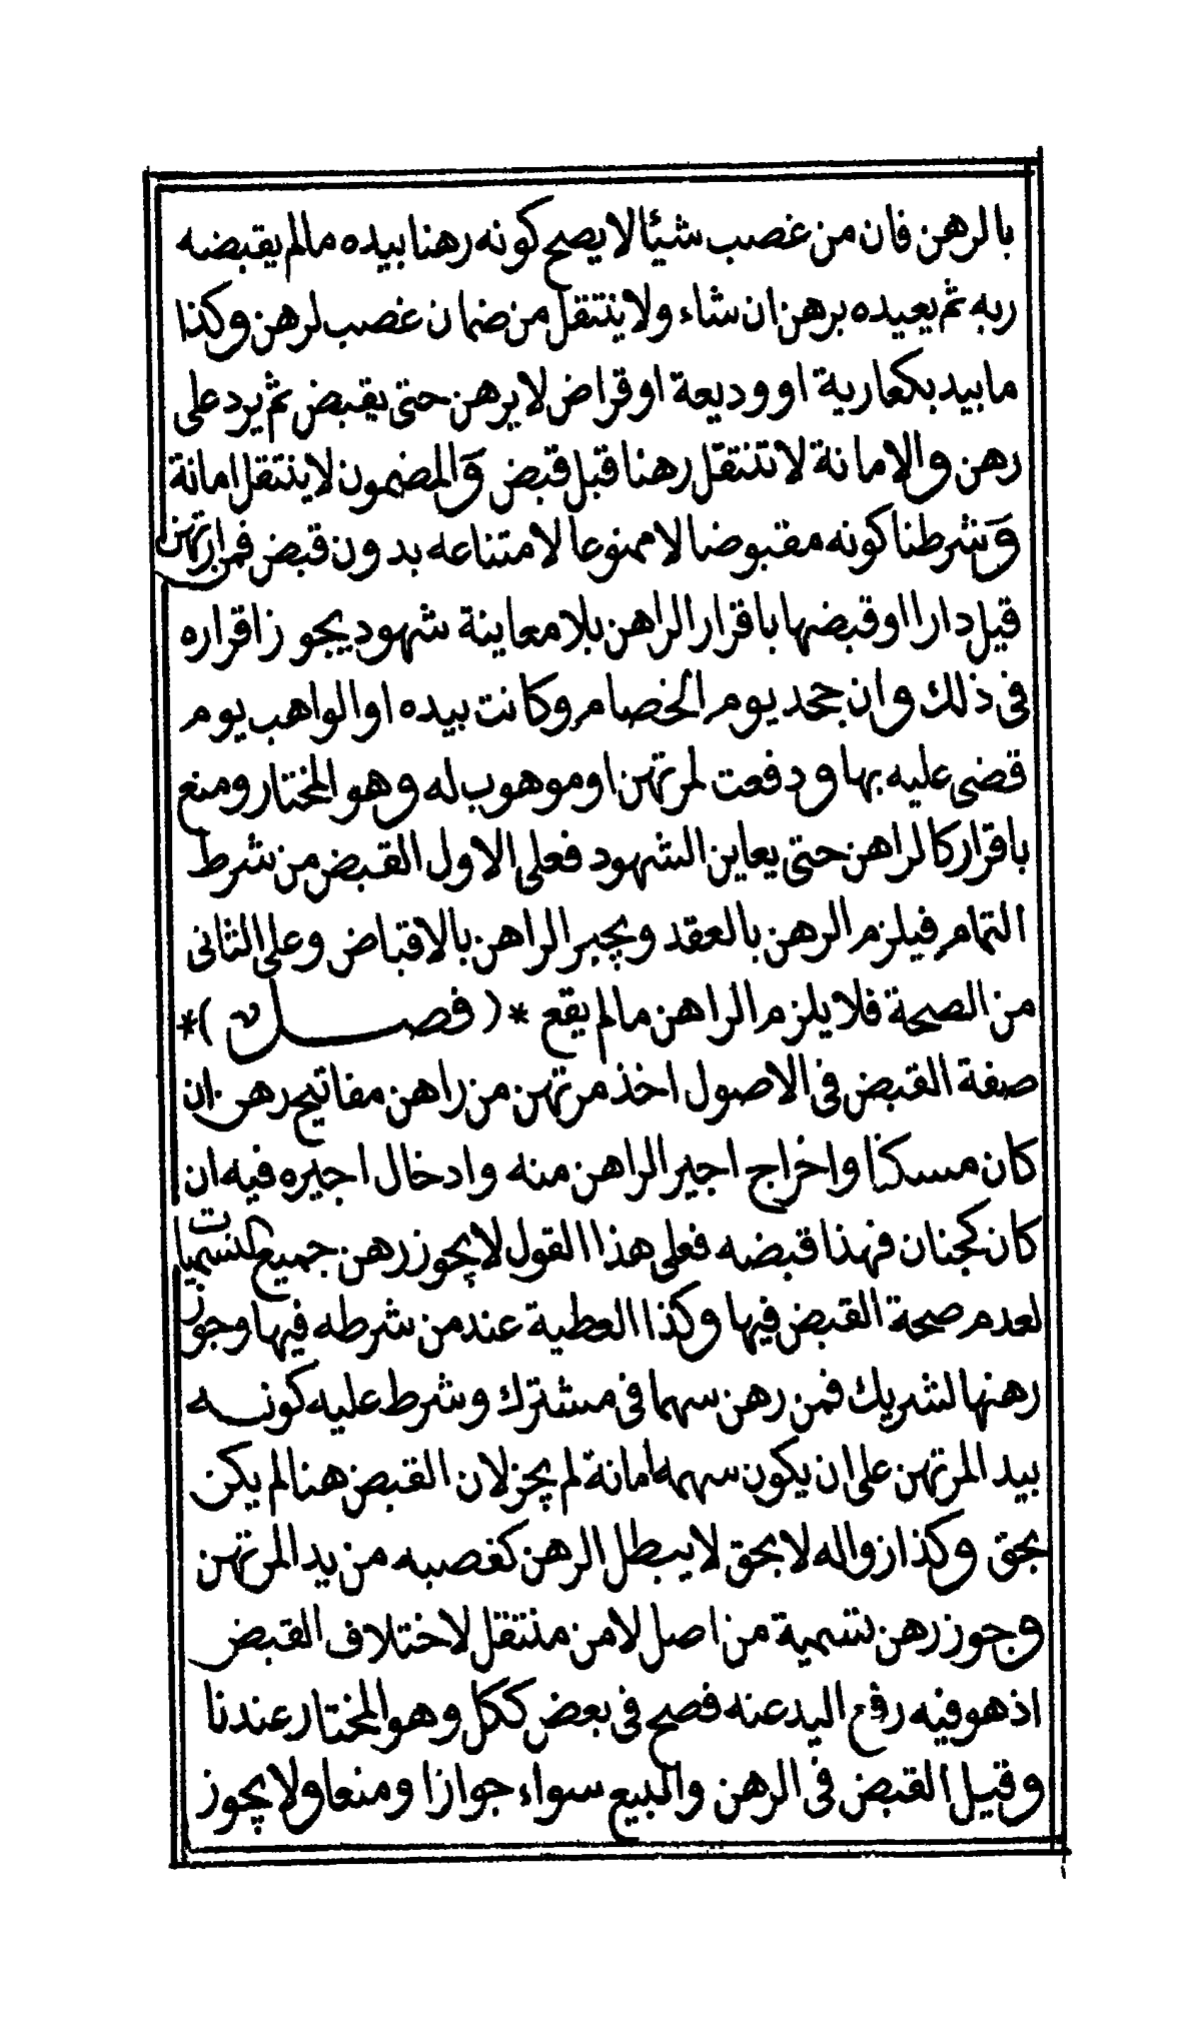 بالرهن فان من غصب شيئا لا يصح كونه رهنا بيده ما لم يقبضه
ربه ثم يعيده برهن ان شاء ولا ينتقل من ضمان غصب لرهن وكذا
ما بيد بكعارية او وديعة او قراض لا يرهن حتى يقبض ثم يرد على
رهن والامانة لا تنتقل رهنا قبل قبض والمضمون لا ينتقل امانة
وشرطنا كونه مقبوضا لا ممنوعا لامتناعه بدون قبض فمن ارتهن
قيل دارا او قبضها باقرار الراهن بلا معاينة شهود يجوز اقراره
فى ذلك وان جحد يوم الخصام وكانت بيده او الواهب يوم
قضى عليه بها ودفعت لمرتهن او موهوب له وهو المختار ومنع
باقرار كالراهن حتى يعاين الشهود فعلى الاول القبض من شرط
التمام فيلزم الرهن بالعقد ويجبر الراهن بالاقباض وعلى الثانى
من الصحة فلا يلزم الراهن ما لم يقع * ( فصل ) *
صفة القبض فى الاصول اخذ مرتهن من راهن مفاتيح رهن ان
كان مسكنا واخراج اجير الراهن منه وادخال اجيره فيه ان
كان كجنان فهذا قبضه فعلى هذا القول لا يجوز رهن جميع التسميات
لعدم صحة القبض فيها وكذا العطية عند من شرطه فيها وجوز
رهنها لشريك فمن رهن سهما فى مشترك وشرط عليه كونه
بيد المرتهن على ان يكون سهمه امانة لم يجز لان القبض هنا لم يكن
بحق وكذا زواله لا بحق لا يبطل الرهن كغصبه من يد المرتهن
وجوز رهن تسمية من اصل لا من منتقل لاختلاف القبض
اذ هو فيه رفع اليد عنه فصح فى بعض ككل وهو المختار عندنا
وقيل القبض فى الرهن والبيع سواء جوازا ومنعا ولا يجوز